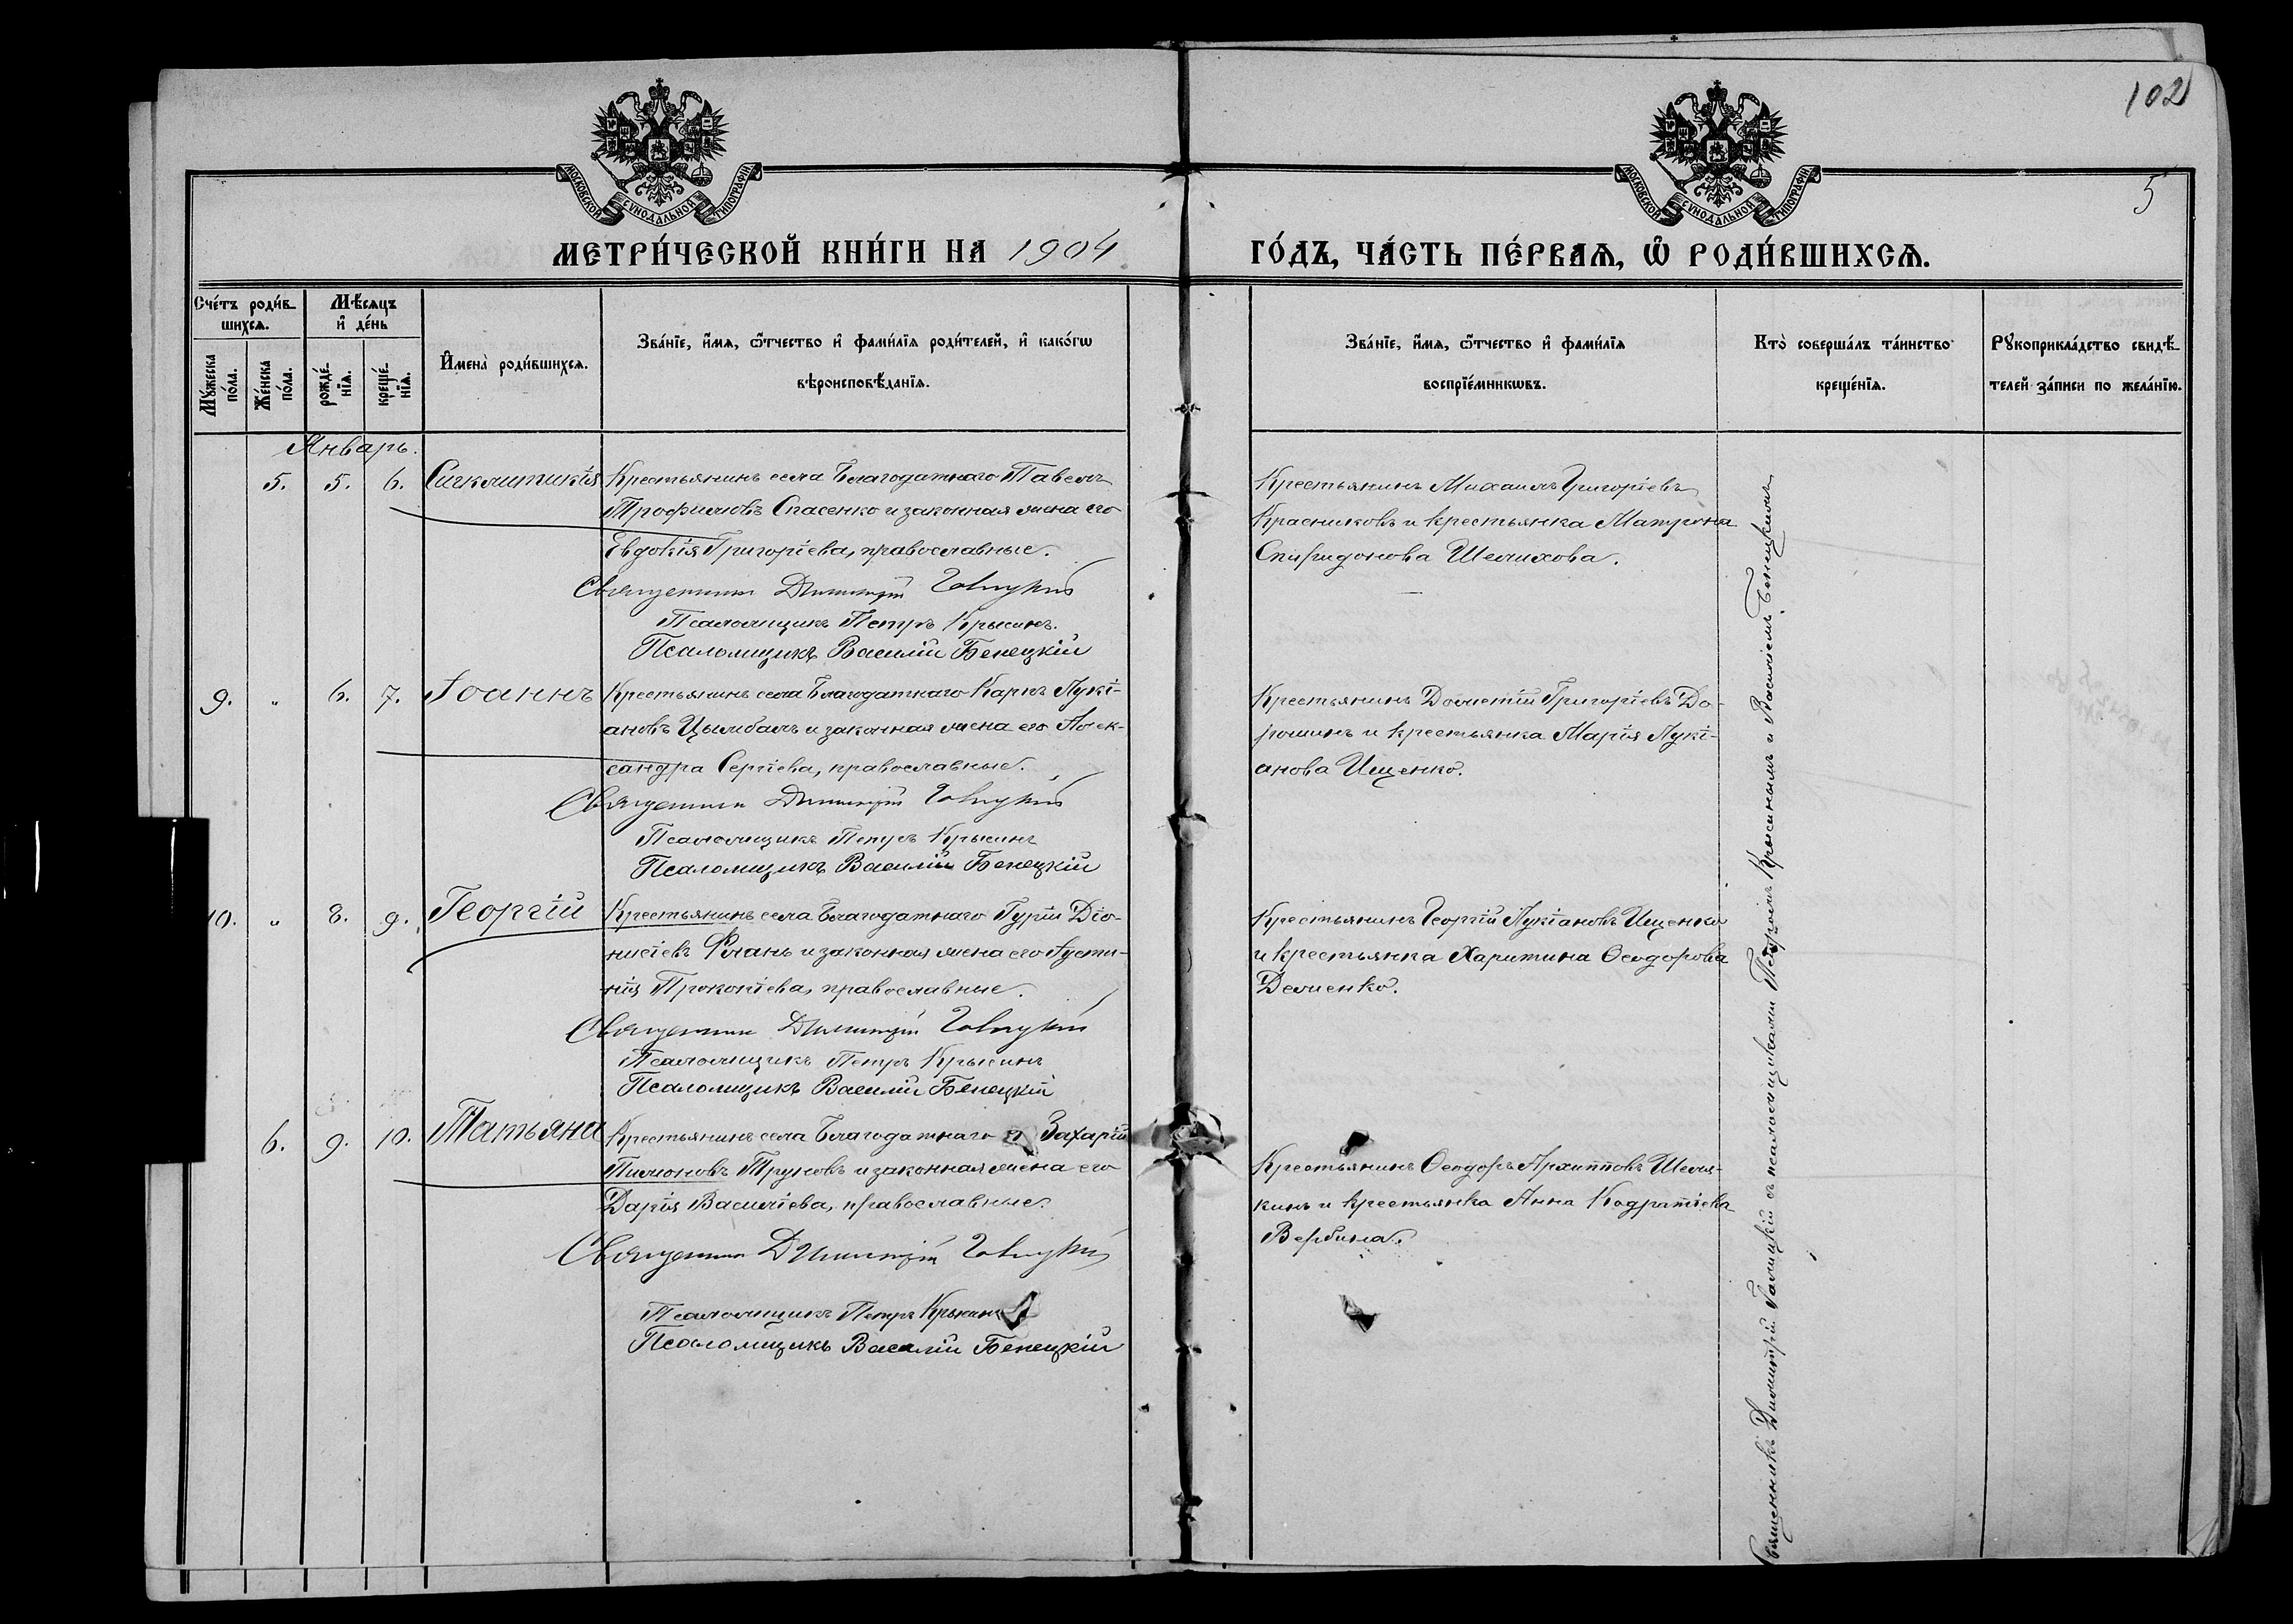 102
5
МОСКОВСКОЙ СѴНОДАЛЬНОЙ ТИПОГРАФІИ
МОСКОВСКОЙ СѴНОДАЛЬНОЙ ТИПОГРАФІИ
МЕТРИ́ЧЕСКОЙ КНИ́ГИ НА 1904
ГО́ДЪ, ЧА́СТЬ ПЕ́РВАѦ, Ѽ РОДИ́ВШИХСѦ.
Сче́тъ роди́в-
шихсѧ.
Мꙋ́жеска по́ла.
Же́нска по́ла.
Мѣ́сѧцъ
и҆ де́нь
рожде́-
нїѧ.
креще́-
нїѧ.
И҆мена̀ роди́вшихсѧ.
Зва́нїе, и҆́мѧ, ѻ҆́тчество и҆ фами́лїѧ роди́телей, и҆ како́гѡ
вѣроисповѣ́данїѧ.
Зва́нїе, и҆́мѧ, ѻ҆́тчество и҆ фами́лїѧ
воспрїе́мникѡвъ.
Кто̀ соверша́лъ та́инство
креще́нїѧ.
Рꙋкоприкла́дство свидѣ́-
телей за́писи по жела́нїю.
Январь.
5. 5. 6. Сигклитикія
Крестьянинъ села Благодатнаго Павелъ
Трофимовъ Спасенко и законная жена его
Евдокія Григоріева, православные.
Священникъ Димитрій
Псаломщикъ Петръ Крысинъ.
Псаломщикъ Василій Бенецкій
Крестьянинъ Михаилъ Григоріевъ
Красниковъ и крестьянка Матрона
Спиридонова Шелихова.
9. " 6. 7. Іоаннъ
Крестьянинъ села Благодатнаго Карпъ Лукі-
ановъ Цымбалъ и законная жена его Алек-
сандра Сергіева, православные.
Священникъ Димитрій
Псаломщикъ Петръ Крысинъ
Псаломщикъ Василій Бенецкій
Крестьянинъ Дометій Григоріевъ До-
рошинъ и крестьянка Марія Лукі-
анова Ищенко.
10. " 8. 9. Георгій
Крестьянинъ села Благодатнаго Гурій Діо-
нисіевъ и законная жена его Іусти-
нія Прокопіева, православные.
Священникъ Димитрій
Псаломщикъ Петръ Крысинъ
Псаломщикъ Василій Бенецкій
Крестьянинъ Георгій Лукіановъ Ищенко
и крестьянка Харитина Ѳеодорова
Демченко.
6. 9. 10. Татьяна
Крестьянинъ села Благодатнаго Захарій
Тимоновъ Труновъ и законная жена его
Дарія Василіева, православные.
Священникъ Димитрій
Псаломщикъ Петръ Крысинъ
Псаломщикъ Василій Бенецкій
Крестьянинъ Ѳеодоръ Архипповъ Шеля-
кинъ и крестьянка Анна Кодратіева
Вербина.
Священникъ Димитрій съ псаломщиками Петромъ Крысинымъ и Василіемъ Бенецкимъ